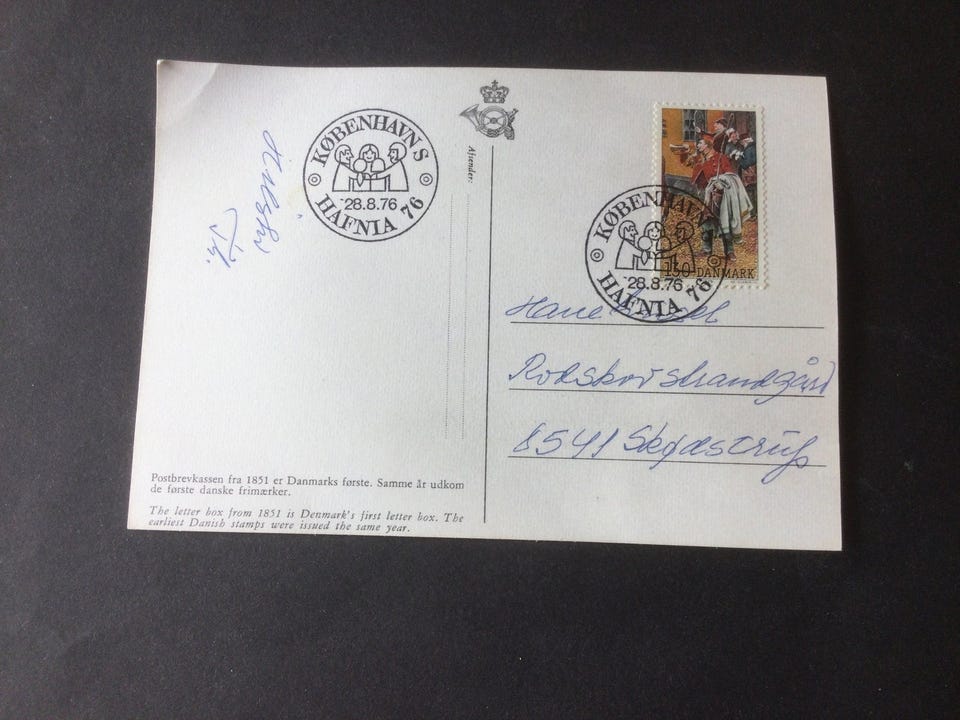 KØBENHAVN S
28.8.76
HAFNIA 76
Afsender:
KØBENHAVN
28.8.76
HAFNIA 76
130 DANMARK
Hilsen
Rodskovstrandgård
8541 Skødstrup
Postbrevkassen fra 1851 er Danmarks første. Samme år udkom
de første danske frimærker.
The letter box from 1851 is Denmark's first letter box. The
earliest Danish stamps were issued the same year.